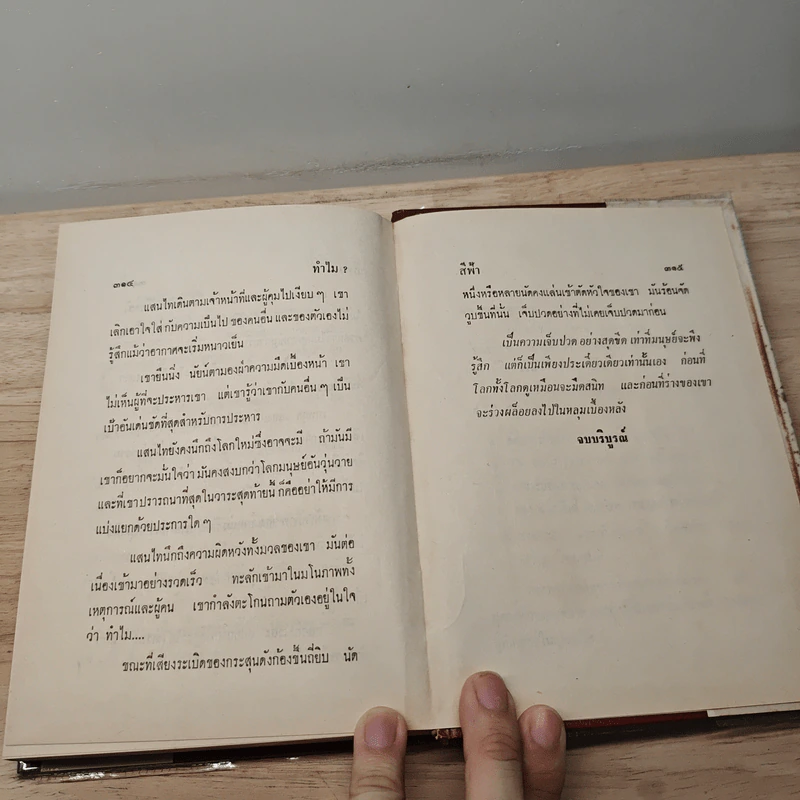 ๓๑๔ ทำไม ?
แสนไทเดินตามเจ้าหน้าที่และผู้คุมไปเงียบ ๆ เขา
เลิกเอาใจใส่กับความเป็นไป ของคนอื่น และของตัวเองไม่
รู้สึกแม้ว่าอากาศจะเริ่มหนาวเย็น
เขายืนนิ่ง นัยน์ตามองฝ่าความมืดเบื้องหน้า เขา
ไม่เห็นผู้ที่จะประหารเขา แต่เขารู้ว่าเขากับคนอื่น ๆ เป็น
เป้าอันเด่นชัดที่สุดสำหรับการประหาร
แสนไทยังคงนึกถึงโลกใหม่ซึ่งอาจจะมี ถ้ามันมี
เขาก็อยากจะมั่นใจว่า มันคงสงบกว่าโลกมนุษย์อันวุ่นวาย
และที่เขาปรารถนาที่สุดในวาระสุดท้ายนี้ ก็คืออย่าให้มีการ
แบ่งแยกด้วยประการใด ๆ
แสนไทนึกถึงความผิดหวังทั้งมวลของเขา มันต่อ
เนื่องเข้ามาอย่างรวดเร็ว ทะลักเข้ามาในมโนภาพทั้ง
เหตุการณ์และผู้คน เขากำลังตะโกนถามตัวเองอยู่ในใจ
ว่า ทำไม....
ขณะที่เสียงระเบิดของกระสุนดังก้องขึ้นถี่ยิบ นัด
สีฟ้า ๓๑๕
หนึ่งหรือหลายนัดคงแล่นเข้าตัดหัวใจของเขา มันร้อนจัด
วูบขึ้นที่นั้น เจ็บปวดอย่างที่ไม่เคยเจ็บปวดมาก่อน
เป็นความเจ็บปวด อย่างสุดขีด เท่าที่มนุษย์จะพึง
รู้สึก แต่ก็เป็นเพียงประเดี๋ยวเดียวเท่านั้นเอง ก่อนที่
โลกทั้งโลกดูเหมือนจะมืดสนิท และก่อนที่ร่างของเขา
จะร่วงผล็อยลงไปในหลุมเบื้องหลัง
จบบริบูรณ์